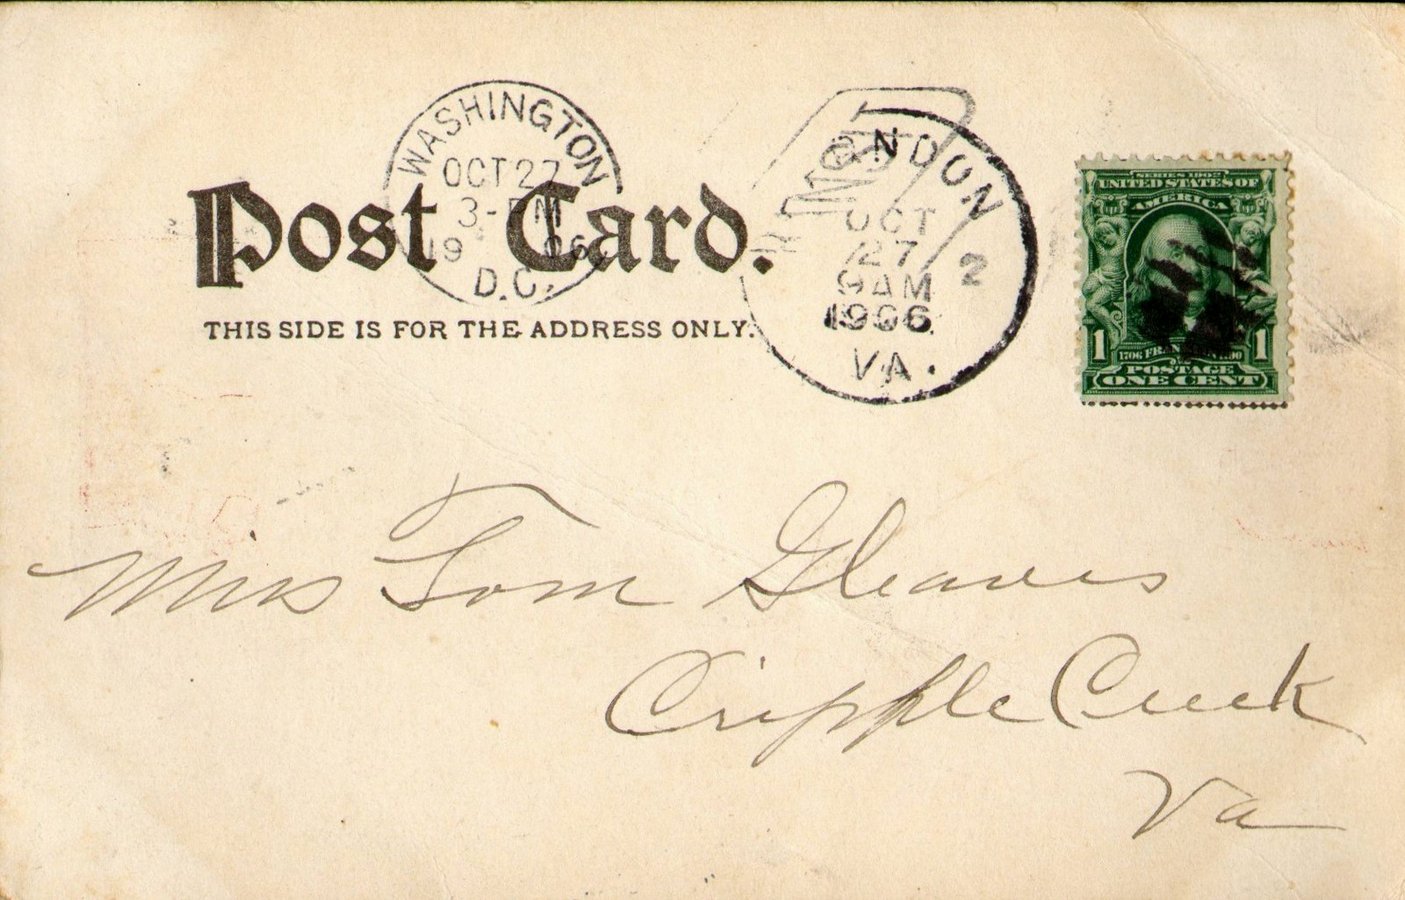 WASHINGTON
OCT 27
3-PM
19 06
D.C.
NDON
OCT
27
9AM
1906
VA.
2
SERIES 1902
UNITED STATES OF
AMERICA
1 1706 FRANKLIN 1790 1
POSTAGE
ONE CENT
Post Card.
THIS SIDE IS FOR THE ADDRESS ONLY.
Miss Tom Gleaves
Cripple Creek
Va